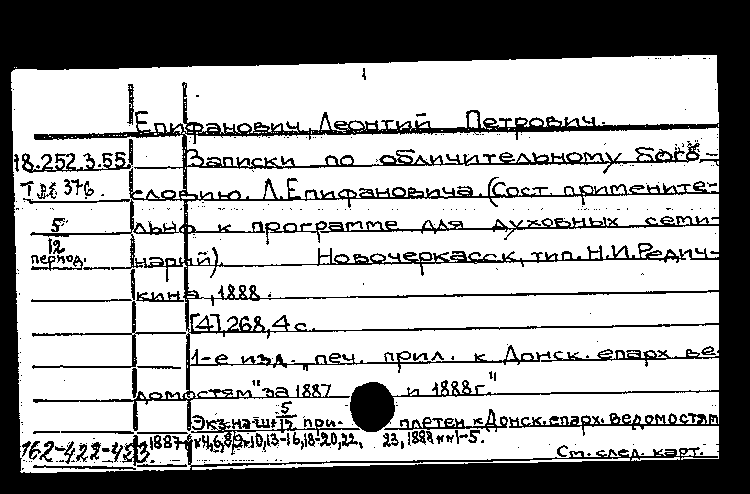 1
Епифанович, Леонтий Петрович.
18.252.3.55. Записки по обличительному бого-
376. словию. Л. Епифановича. (Сост. примените-
5/12 льно к программе для духовных семи-
период. нарий). Новочеркасск, тип. Н.И. Редич-
кина, 1888.
[4], 268, 4 с.
1-е изд. „печ. прил. к Донск. епарх. ве-
домостям" за 1887 и 1888г."
Экз. на ш. 5/12 при- плетен к Донск. епарх. ведомостям
1887 10, 13-16, 18-20, 22, 23, 1888 №№1-5.
162-422-423. См. след. карт.